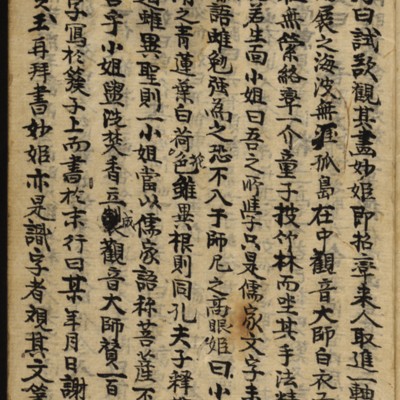 曰試欲觀其畫妙姬即招章来人取進一軸
展之海波無涯孤島在中觀音大師白衣
無縈絡章一介童子投竹林而坐其手法精
若生面小姐曰吾之所學只是儒家文字未
語雖勉強為之恐不入于師尼之高眼姬曰小
之青蓮葉白荷花色雖異根則同孔夫子釋
道雖異聖則一小姐當以儒家語称菩薩不
乎小姐盥洗焚香觀音大師賛一百
字寫於簇子上而書於末行曰某年月日謝
玉再拜書妙姬亦是識字者覌其文筆